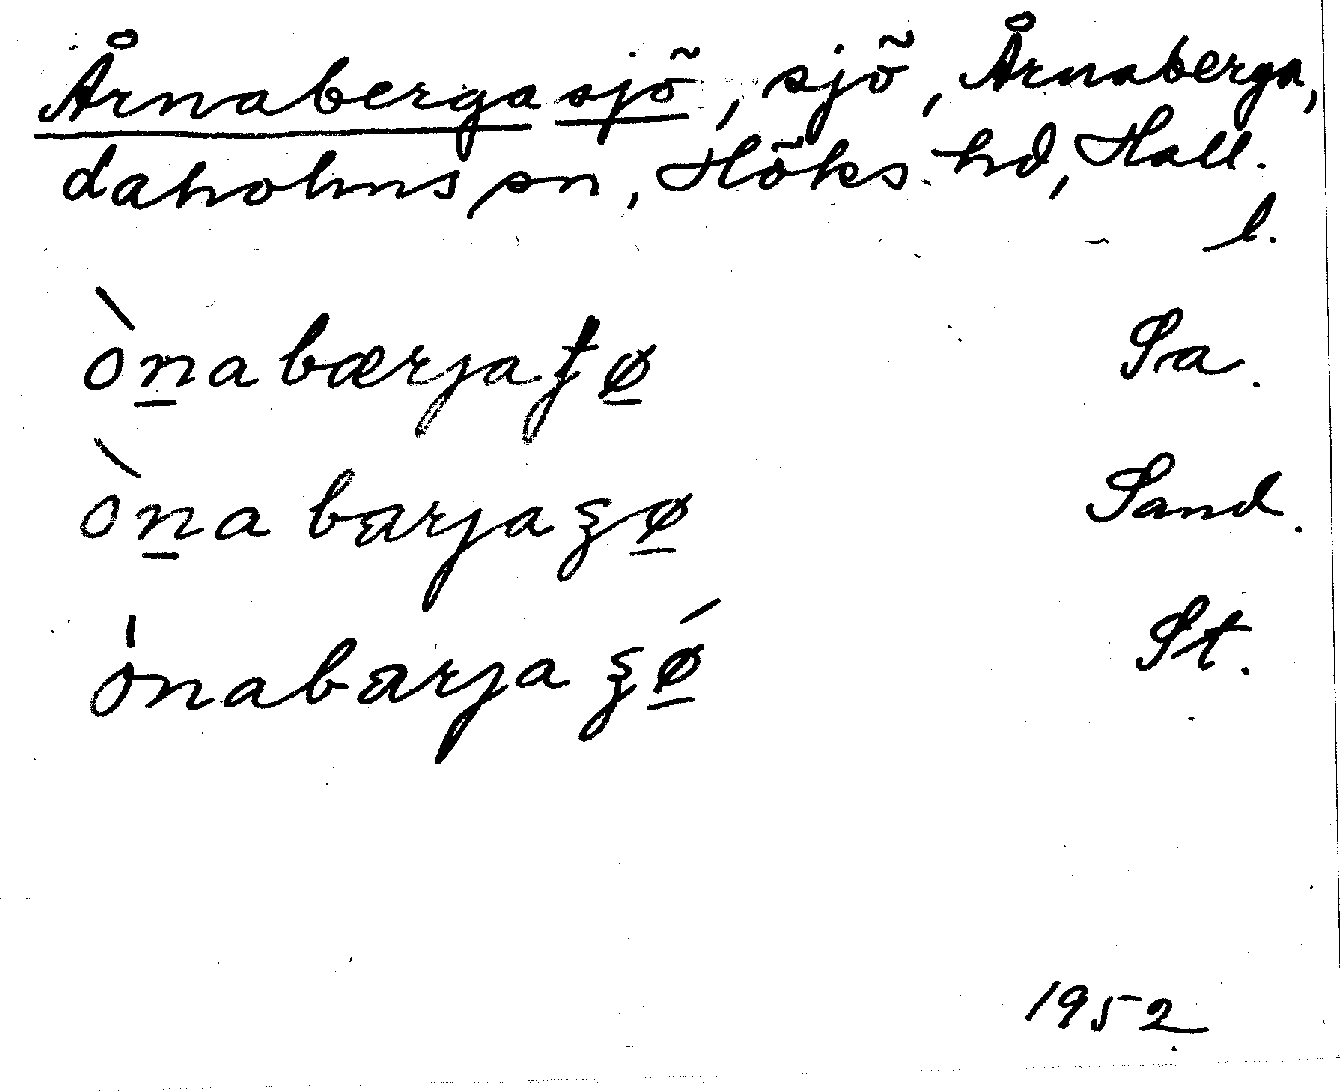 Årnaberga sjö, sjö, Årnaberga,
daholms sn, Höks hd, Hall.
l.
ònabærjaʃø Sa.
òna barjaʒø Sand.
ónabarja ʒǿ St.
1952